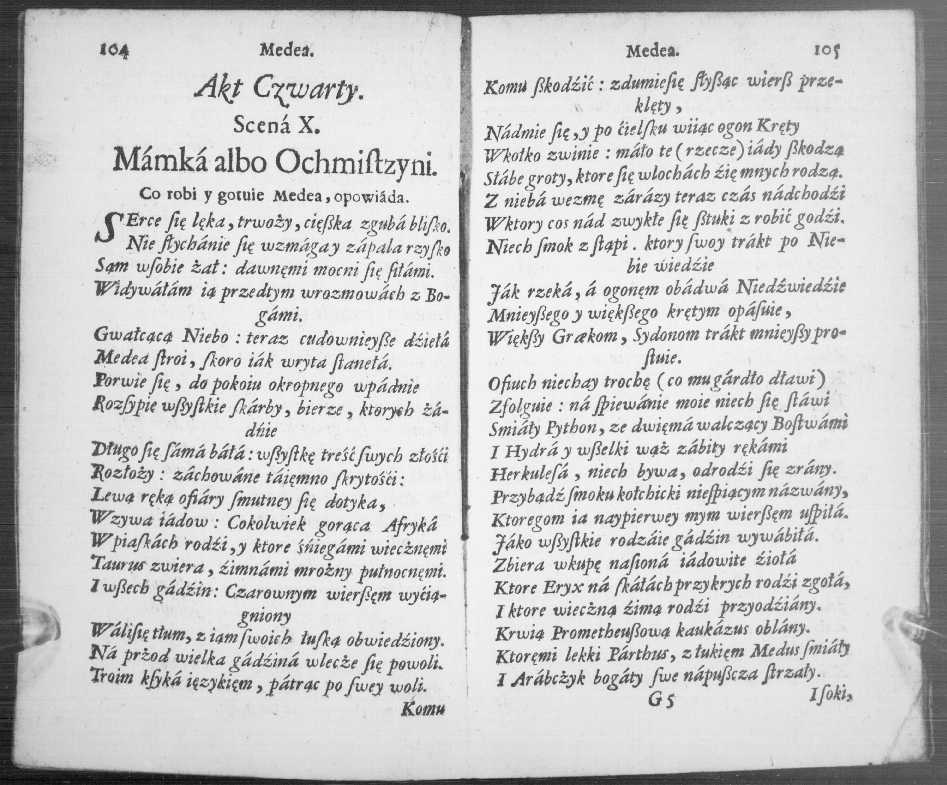 104 Medea.
Akt Czwarty.
Scená X.
Mámká albo Ochmiſtzyni.
Co robi y gotuie Medea, opowiáda.
SErce się lęka, trwoży, cięſzka zgubá bliſko.
Nie ſłychánie się wzmága y zápala rzyſko
Sąm wſobie żał: dawnęmi mocni ſię ſiłámi.
Widywáłám ią przedtym wrozmowách z Bo-
gámi.
Gwałcącą Niebo: teraz cudownieyſze dźiełá
Medea ſtroi, ſkoro iák wryta ſtanełá.
Porwie ſię, do pokoiu okropnego wpádnie
Rozſypie wſzyſtkie ſkárby, bierze, ktorych żá-
dńie
Długo ſię ſámá báłá: wſzyſtkę treść ſwych złośći
Rozłoży: záchowáne táięmno ſkrytośći:
Lewą ręką ofiáry ſmutney ſię dotyka,
Wzywa iádow: Cokolwiek gorąca Afryká
W piaſkách rodźi, y ktore śńiegámi wiecżnęmi
Taurus zwiera, źimnámi mrożny pułnocnęmi.
I wſzech gádźin: Czarownym wierſzęm wyćią-
gniony
Wáliſię tłum, z iąm ſwoich łuſką obwiedźiony.
Ná przod wielka gádźiná wlecże ſię powoli.
Troim kſyká ięzykięm, pátrąc po ſwey woli.
Komu
Medea. 105
Komu ſzkodźić: zdumieſię ſłyſząc wierſz prze-
klęty,
Nádmie ſię, y po ćielſku wiiąc ogon Kręty
Wkołko zwinie: máło te (rzecze) iády ſzkodzą
Słábe groty, ktore ſię wlochách źię mnych rodzą.
Z niebá wezmę zárázy teraz czás nádchodźi
Wktory cos nád zwykłe ſię ſztuki z robić godźi.
Niech ſmok z ſtąpi. ktory ſwoy trákt po Nie-
bie wiedźie
Ják rzeká, á ogonęm obádwá Niedźwiedźie
Mnieyſzego y więkſzego krętym opáſuie,
Więkſzy Grækom, Sydonom trákt mnieyſzy pro-
ſtuie.
Ofiuch niechay trochę (co mu gárdło dławi)
Zfolguie: ná ſpiewánie moie niech ſię ſtáwi
Smiáły Python, ze dwięmá walczący Boſtwámi
I Hydrá y wſzelki wąż zábity rękámi
Herkuleſá, niech bywa, odrodźi ſię zrány.
Przybądź ſmoku kołchicki nieſpiącym názwány,
Ktoregom ia naypierwey mym wierſzęm uſpiłá.
Jáko wſzyſtkie rodzáie gádźin wywábiłá.
Zbiera wkupę naſioná iádowite źiołá
Ktore Eryx ná ſkáłách przykrych rodźi zgołá,
I ktore wieczną źimą rodźi przyodźiány.
Krwią Prometheuſzową kaukázus oblány.
Ktoręmi lekki Párthus, z łukiem Medus ſmiáły
I Arábcżyk bogáty ſwe nápuſzcza ſtrzały.
G 5 I ſoki,